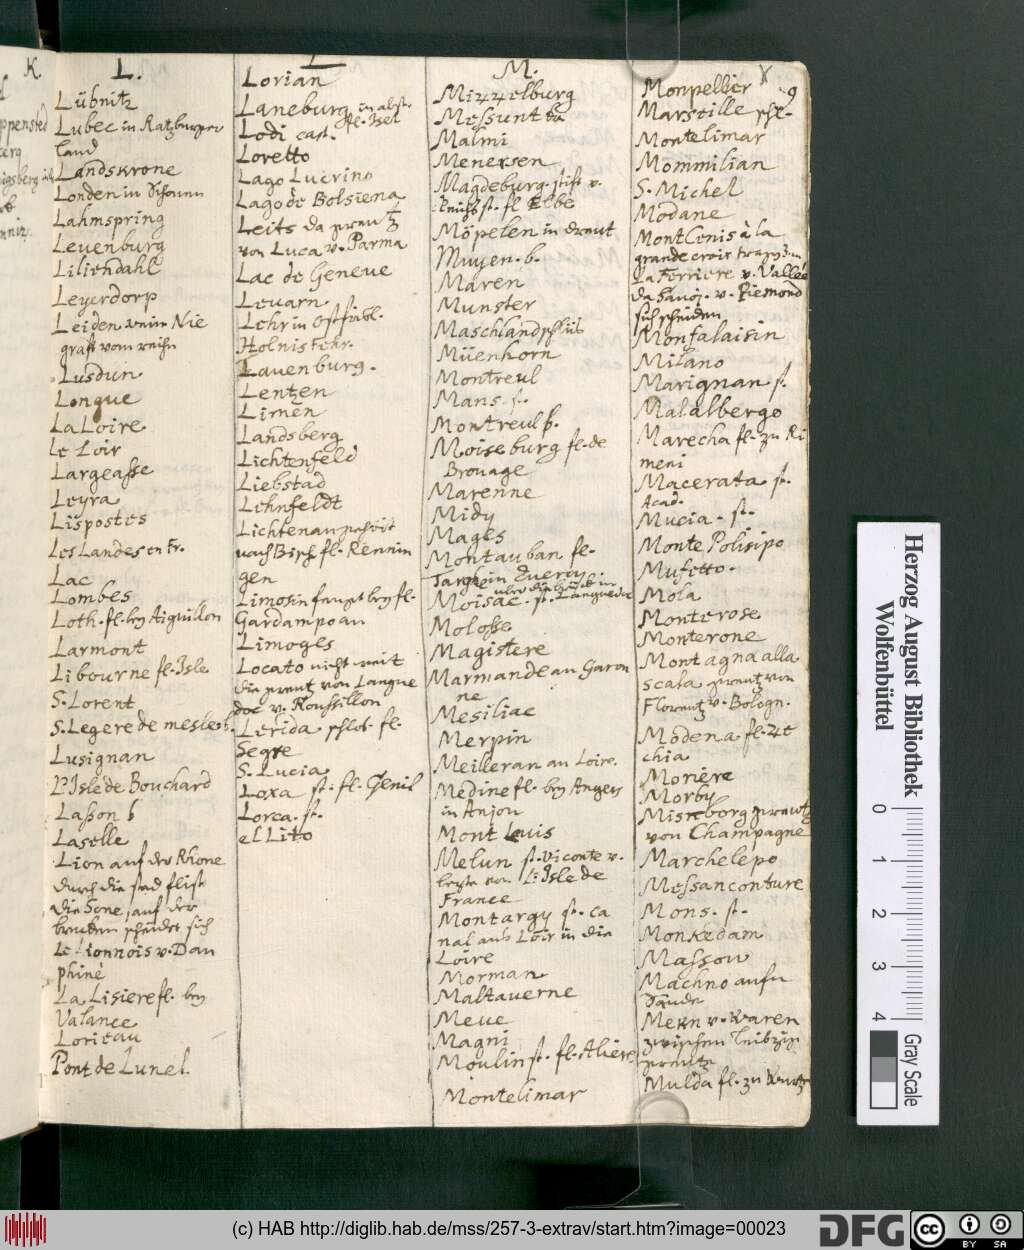 K.
L.
Lübnitz
Lubec in Ratzburger
land
Landskrone
Londen in Schonen
Lahmspring
Leuenburg
Liliendahl
Leyerdorp
Leiden
Lusdun
Longue
La Loire
Le Loir
Largeasse
Leyra
Lispostes
Les Landes en Fr.
Lac
Lombes
Loth. fl. bey Aiguillon
Larmont
Libourne fl. Isle
S. Lorent
S. Legere de mesle b.
Lusignan
L'Isle de Bouchard
Lasson b
Laselle
Lion auf der Rhone
durch die stad flist
die Sone, auf der
brucken scheidet sich
le Lionnois v. Dau
phiné
La Lisiere fl. bey
Valance
Lorieau
Pont de Lunel.
L
Lorian
Laneburg
Lodi cast.
Loretto
Lago Lucrino
Lago de Bolsiena
Leits da grentz
von Luca v. Parma
Lac de Geneve
Levarn
Lehr in Ostfrisl.
Holnis Fehr.
Lauenburg.
Lentzen
Limen
Landsberg
Lichtenfeld
Liebstad
Lehnfeldt
Lichtenau
nach Bisch. fl. Rennin
gen
Limosin
Gardampoau
Limoges
Locato nicht weit
die grentz von Langue
doc v. Roussillon
Lerida schlos. fl.
Segre
S. Lucia
Loxa st. fl. Genil
Lorca. st.
el Lito
M.
Mizzelburg
Messunt
Malmi
Menexsen
Magdeburg. stift v.
fl Elbe
Möpelen in drent
Muyen. b.
Maren
Munster
Maschlandschlus
Müenhorn
Montreul
Mans. st.
Montreul b.
Moiseburg fl. de
Brouage
Marenne
Midy
Mages
Montauban fl.
Moisac. st. Languedoc
Molosse
Magistere
Marmande an Garon
ne
Mesiliac
Merpin
Meilleran an Loire.
Medine fl. bey Angers
in Anjou
Mont Lewis
Melun st. viconte v.
L'Isle de
France
Montargy st. ca
nal aus Loir in die
Loire
Morman
Maltaverne
Meue
Magni
Moulin st. fl. Alier
Montelimar
9
Monpellier
Marseille
Montelimar
Mommilian
S. Michel
Modane
Mont Cenis à la
grande croix
La Ferriere v. Vallée
da Savoj. v. Piemond
sich scheiden
Monfalaisin
Milano
Marignan st.
Malalbergo
Marecha fl. zu Ri
meni
Macerata st.
Acad.
Mucia. st.
Monte Polisipo
Mufetto.
Mola
Monterose
Monterone
Montagna alla
scala grentz von
Florentz v. Bologn.
Modena fl. Ze
chia
Moriere
Morby
Misreborg grentz
von Champagne
Marchelepo
Messanconture
Mons. st.
Monkedam
Massow
Machno aufn
Sande
Mexn v. Waren
zwischen Leibzig
grentz
Mulda fl. zu Wurtz
Herzog August Bibliothek
Wolfenbüttel
0 1 2 3 4
Gray Scale
(c) HAB http://diglib.hab.de/mss/257-3-extrav/start.htm?image=00023
DFG
cc BY SA